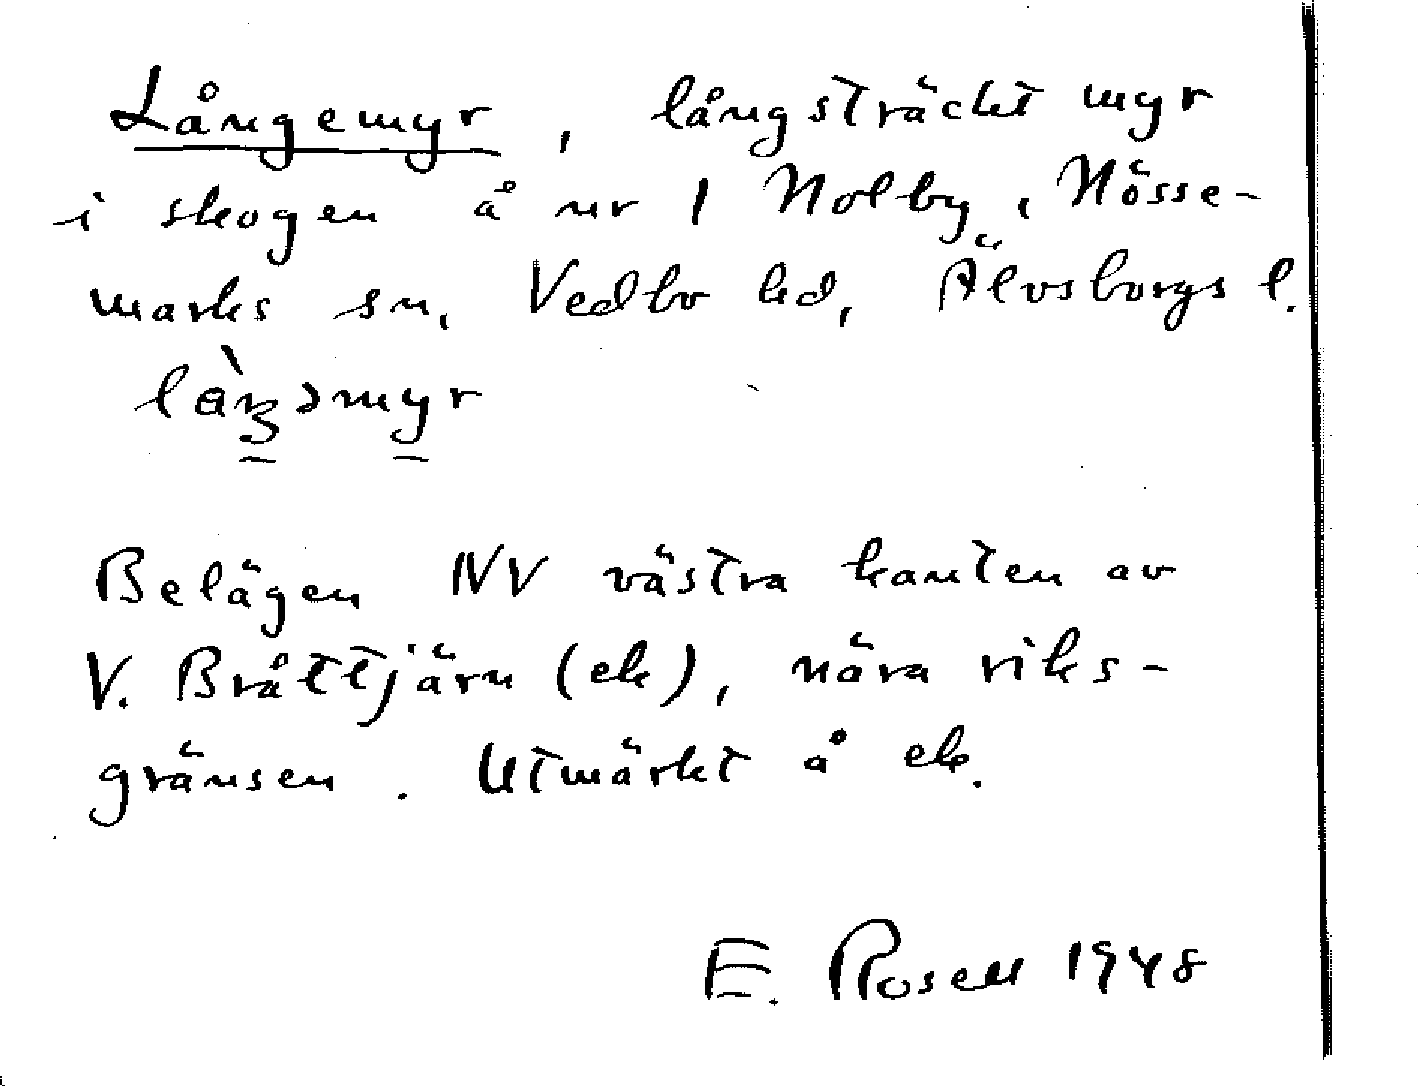 Långemyr, långsträckt myr
i skogen å nr 1 Nolby, Nösse-
marks sn, Vedbo hd, Älvsborgs l.
Belägen NV västra kanten av
V. Bråttjärn (ek), nära riks-
gränsen. Utmärkt å ek.
E. Rosell 1948